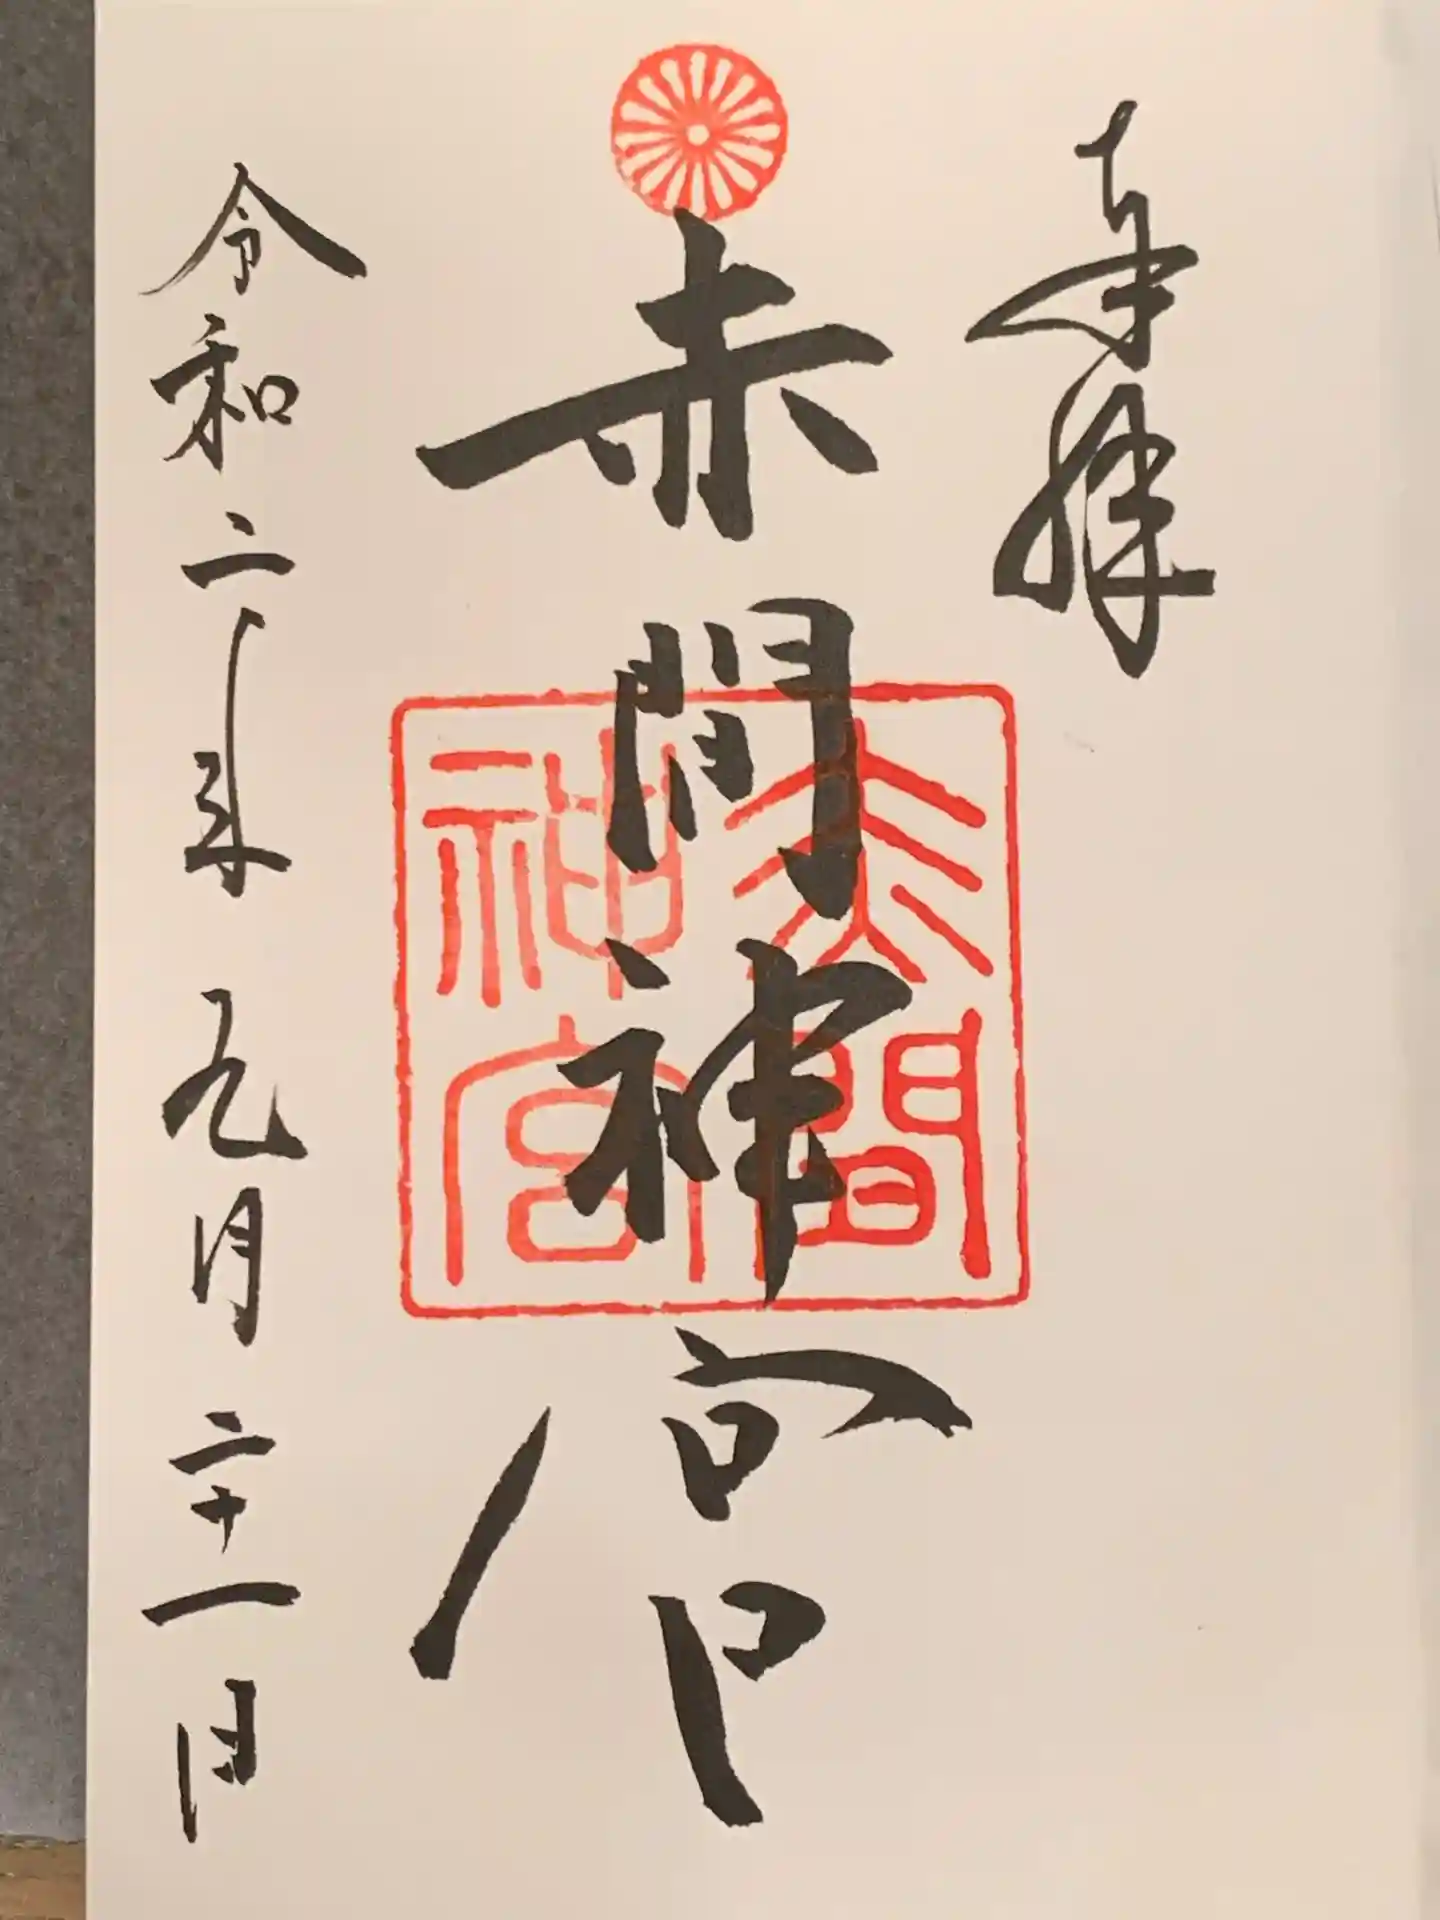 奉拝
赤間神宮
赤間
神宮
令和二年九月二十一日